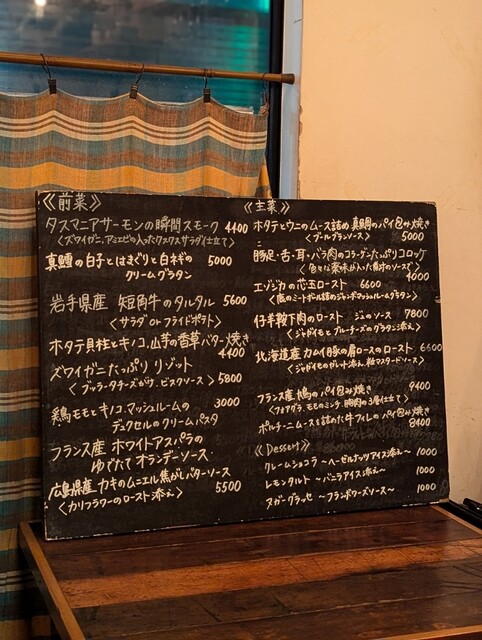 《前菜》
タスマニアサーモンの瞬間スモーク 4400
〈ズワイガニ、アエビの入ったワクワクサラダ仕立て〉
真鱈の白子とはまぐりと白ネギの 5000
クリームグラタン
岩手県産 短角牛のタルタル 5600
〈サラダ or フライドポテト〉
ホタテ貝柱とキノコ、山芋の香草バター焼き
4400
ズワイガニたっぷり リゾット
〈ブッラータチーズがけ、ビスクソース〉 5800
鶏モモとキノコ、マッシュルームの 3000
デュクセルのクリームパスタ
フランス産 ホワイトアスパラの
ゆでたて オランデーソース
広島県産 カキのムーエル焦がしバターソース
〈カリフラワーのロースト添え〉 5500
《主菜》
ホタテとウニのムース詰め 真鯛のパイ包み焼き
〈ブールブランソース〉 5000
豚足・舌・耳・バラ肉のコラーゲンたっぷりコロッケ
4000
エゾジカの芯玉ロースト 6600
仔羊鞍下肉のロースト ジュのソース 7800
〈ジャガイモとブルーチーズのグラタン添え〉
北海道産 カムイ豚の肩ロースのロースト 6600
〈ジャガイモのガレット添え、粒マスタードソース〉
フランス産 鳩のパイ包み焼き 9400
〈フォアグラ、モモのミンチ、胸肉の3層仕立て〉
ポルチーニムースを詰めた牛フィレのパイ包み焼き
8400
《Dessert》
クレームショコラ ～ヘーゼルナッツアイス添え～ 1000
レモンタルト ～バニラアイス添え～ 1000
ヌガーグラッセ ～フランボワーズソース～ 1000